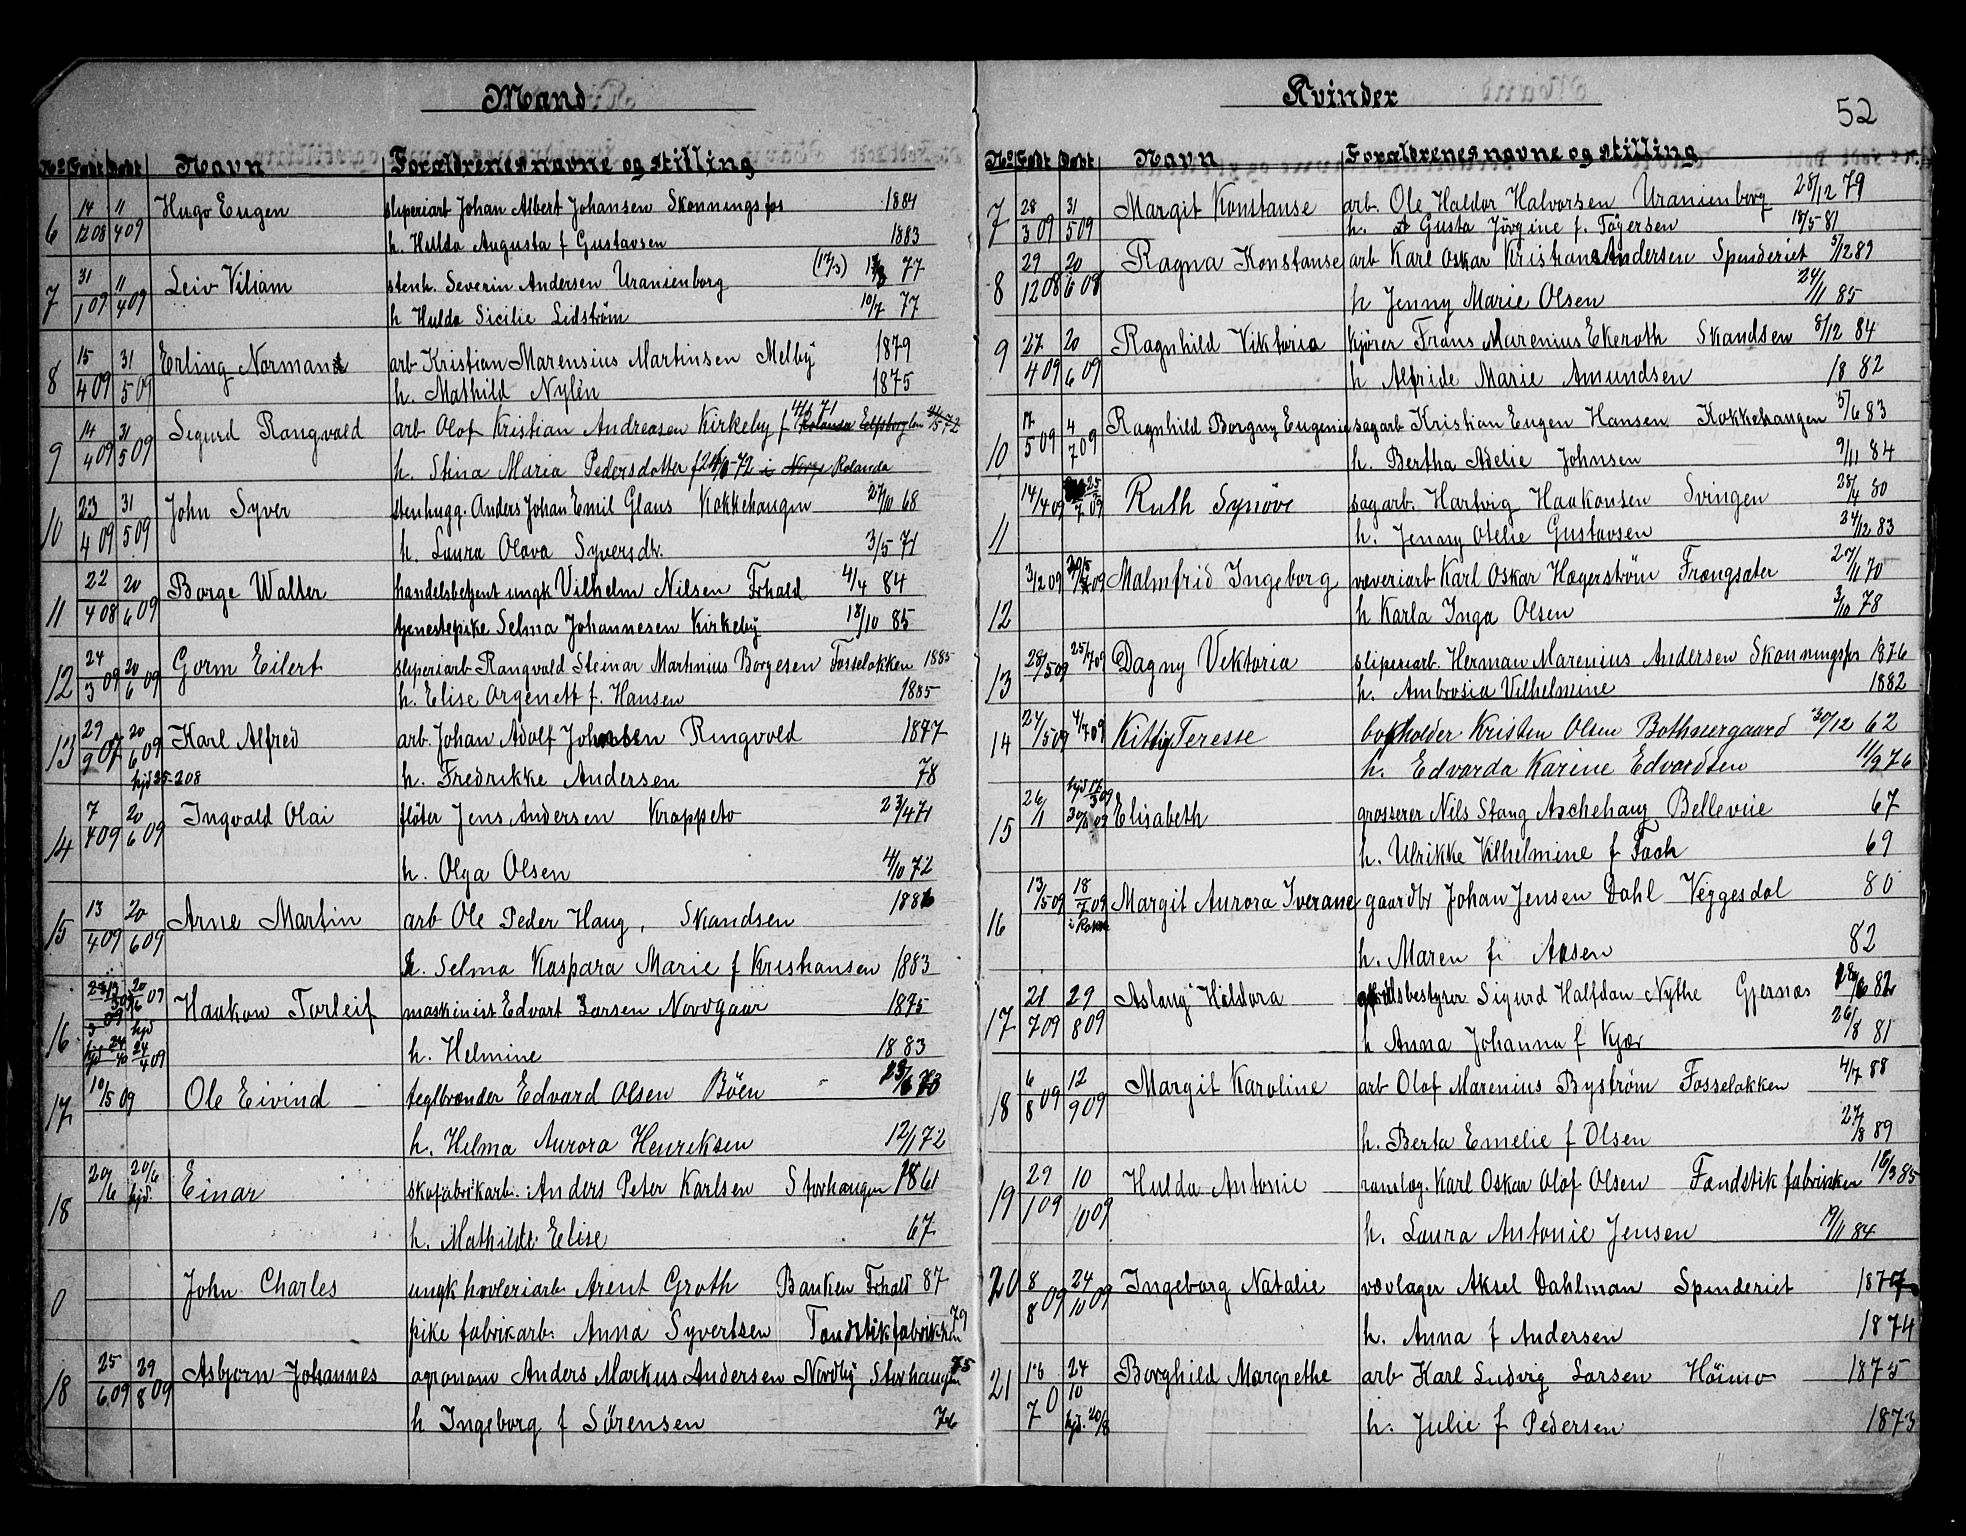 Mænd
No Født Døbt Navn Forældrenes navne og stilling
6 14/12 08 11/4 09 Hugo Eugen sliperiarb Johan Albert Johansen Skonningsfos 1884
h. Hulda Augusta f Gustavsen 1883
7 31/1 09 11/4 09 Leiv Viliam stenh. Severin Andersen Uranienborg 77
h Hulda Sicilie Lidstrøm 10/7 77
8 15/4 09 31/5 09 Erling Norman arb Kristian Marensius Martinsen Melby 1879
h. Mathild Nylén 1875
9 14/4 09 31/5 09 Sigurd Rangvald arb Olof Kristian Andreasen Kirkeby f 4/3 71
h. Stina Maria Pedersdotter Rolanda
10 23/4 09 31/5 09 John Syver stenhugg. Anders Johan Emil Glans Kokkehaugen 27/10 68
h. Laura Olava Syversdtr. 3/5 71
11 22/4 08 20/6 09 Borge Walter handelsbetjent ungk Vilhelm Nilsen Frhald 4/4 84
tjenestepike Selma Johannesen Kirkeby 18/10 85
12 24/3 09 20/6 09 Gorm Eilert sliperiarb Rangvald Steinar Martinius Borgesen Fosseløkken 1885
h. Elise Argenett f. Hansen 1885
13 29/9 07 20/6 09 Karl Alfred arb. Johan Adolf Johansen Ringvold 1877
hjd 25-2 08 h. Fredrikke Andersen 78
14 7/4 09 20/6 09 Ingvald Olai fløter Jens Andersen Krappeto 23/4 71
h. Olga Olsen 4/10 72
15 13/4 09 20/6 09 Arne Martin arb Ole Peder Haug, Skandsen 1886
h. Selma Kaspara Marie f Kristiansen 1883
16 20/6 09 Haakon Torleif maskinist Edvart Larsen Nordgaar 1875
hjd 24/4 09 h. Helmine 1883
17 10/5 09 Ole Eivind teglbrænder Edvard Olsen Böen 73
h. Helma Aurora Henriksen 12/1 72
18 20/6 20/6 hjd. Einar skofabrikarb. Anders Peter Karlsen Storhaugen 1861
h. Mathilde Elise 67
0 John Charles ungk hovleriarb Arent Groth Banken Frhald 87
pike fabrikarb. Anna Syvertsen Tændstikfabrikken 79
18 25/6 09 29/8 09 Asbjørn Johannes agronom Anders Markus Andersen Nordby Storhaugen 75
h Ingeborg f Sørensen 76
Kvinder 52
No Født Døbt Navn Forældrenes navne og stilling
7 28/3 09 31/5 09 Margit Konstanse arb. Ole Haldor Halvorsen Uranienborg 28/12 79
h. Gusta Jørgine f. Tøgersen 18/5 81
8 29/12 08 20/6 08 Ragna Konstanse arb Karl Oskar Kristian Andersen Spinderiet 5/12 89
h Jenny Marie Olsen 24/11 85
9 27/4 09 20/6 09 Ragnhild Viktoria kjører Frans Marenius Ekeroth Skandsen 8/12 84
h Alfride Marie Amundsen 18 82
10 17/5 09 4/7 09 Ragnhild Borgny Eugenie sagarb Kristian Eugen Hansen Kokkehaugen 5/6 83
h. Bertha Adelie Johnsen 9/11 84
11 14/4 09 25/7 09 Ruth Synöve sagarb. Hartvig Haakonsen Svingen 25/4 80
h. Jenny Otelie Gustavsen 24/12 83
12 3/12 09 Malmfrid Ingeborg væveriarb Karl Oskar Hægerstrøm Frængsæter 27/11 70
h Karla Inga Olsen 3/10 78
13 28/5 09 25/7 09 Dagny Vektoria sliperiarb. Herman Marenius Andersen Skonningsfos 1876
h. Ambrosia Vilhelmine 1882
14 27/5 09 4/7 09 Kitty Teresse bokholder Kristen Olsen Bothnergaard 30/12 62
h. Edvarda Karine Edvardsen 11/9 76
15 26/1 hjd 17/3 09 Elisabeth grosserer Nils Stang Aschehaug Bellevüe 67
h. Ulrikke Vilhelmine f Tach 69
16 13/5 09 18/7 09 Margit Aurora Iverane gaardbr Johan Jensen Dahl Veggesdal 80
h. Maren f. Aasen 82
17 21/7 09 29/8 09 Aslaug Heldora Sigurd Halfdan Nythe Gjernæs 82
h Anna Johanna f Kjær 26/8 81
18 6/8 09 12/9 09 Margit Karoline arb Olof Marenius Byström Fosseløkken 4/7 88
h. Berta Emelie f Olsen 27/8 89
19 29/1 09 10/10 09 Hulda Antonie Karl Oskar Olof Olsen Tændstikfabrikken 18/3 85
h. Laura Antonie Jensen 19/11 84
20 8/8 09 24/10 09 Ingeborg Natalie vævlager Aksel Dahlman Spinderiet 1877
h. Anna f Andersen 1874
21 24/10 Borghild Margrethe arb Karl Ludvig Larsen Høimo 1875
hjd. 20/8 h. Julie f Pedersen 1873